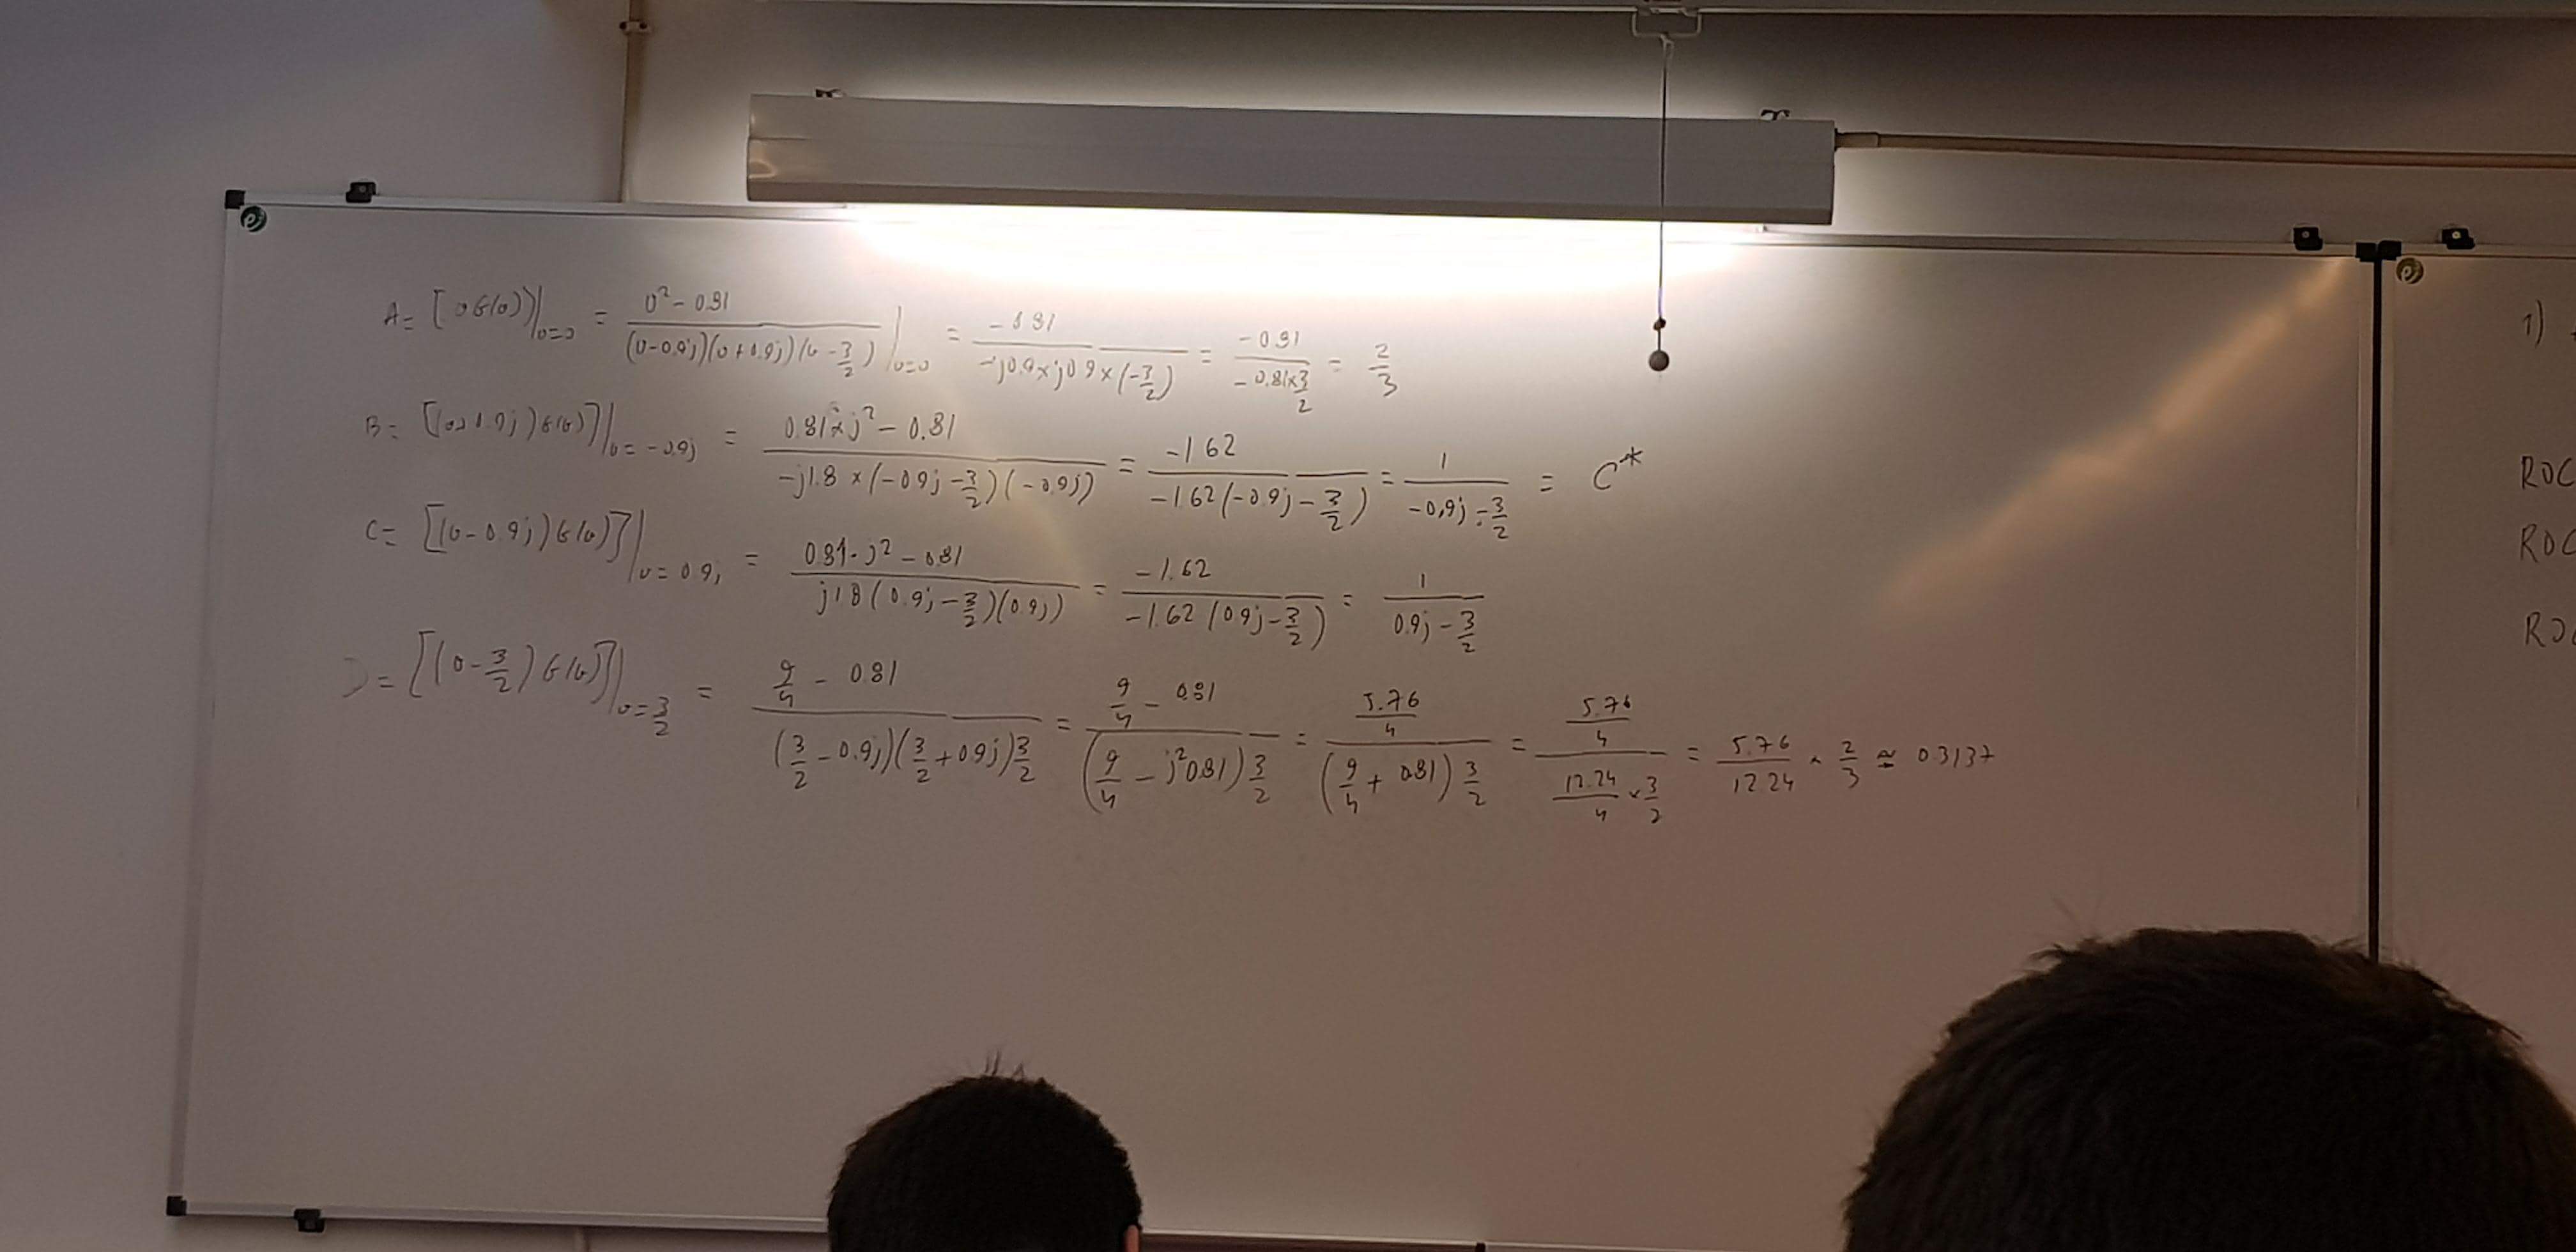 A = [υG(υ)]|υ=0 = (υ² - 0.81) / ((υ-0.9j)(υ+0.9j)(υ-3/2)) |υ=0 = -0.81 / (-j0.9×j0.9×(-3/2)) = -0.81 / (-0.81×3/2) = 2/3
B = [(υ+0.9j)G(υ)]|υ=-0.9j = (0.81×j² - 0.81) / (-j1.8×(-0.9j-3/2)(-0.9j)) = -1.62 / (-1.62(-0.9j-3/2)) = 1 / (-0,9j-3/2) = C*
C = [(υ-0.9j)G(υ)]|υ=0.9j = (0.81·j² - 0.81) / (j1.8(0.9j-3/2)(0.9j)) = -1.62 / (-1.62(0.9j-3/2)) = 1 / (0.9j-3/2)
D = [(υ-3/2)G(υ)]|υ=3/2 = (9/4 - 0.81) / ((3/2-0.9j)(3/2+0.9j)3/2) = (9/4 - 0.81) / ((9/4 - j²0.81)3/2) = (5.76/4) / ((9/4 + 0.81)3/2) = (5.76/4) / (12.24/4 × 3/2) = 5.76/12.24 × 2/3 ≅ 0.3137
1)
ROC
ROC
ROC